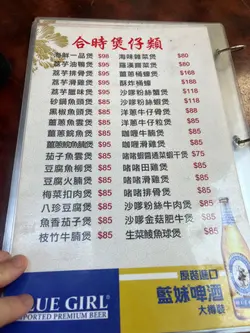 合時煲仔類
海鮮一品煲 $98
荔芋油鴨煲 $95
荔芋排骨煲 $95
荔芋滑雞煲 $95
荔芋臘味煲 $95
砂鍋魚頭煲 $85
黑椒魚頭煲 $85
薑蔥魚雲煲 $85
薑蔥鯇魚煲 $85
薑蔥魚腩煲 $85
茄子魚雲煲 $85
豆腐魚柳煲 $85
豆腐火腩煲 $85
梅菜扣肉煲 $85
八珍豆腐煲 $85
魚香茄子煲 $85
枝竹牛腩煲 $85
海味雜菜煲 $80
羅漢齋菜煲 $80
薑蔥桶蠔煲 $118
酥炸桶蠔 $118
沙嗲粉絲蟹煲 $168
沙嗲粉絲蝦煲 $118
洋蔥牛仔骨煲 $88
洋蔥牛仔粒煲 $88
咖喱牛腩煲 $85
咖喱滑雞煲 $85
啫啫蝦醬通菜蝦干煲 $75
啫啫田雞煲 $85
啫啫滑雞煲 $85
啫啫排骨煲 $85
沙嗲粉絲牛肉煲 $85
沙嗲金菇肥牛煲 $85
生菜鯪魚球煲 $85
BLUE GIRL
IMPORTED PREMIUM BEER
原裝進口
藍妹啤酒
大樽裝